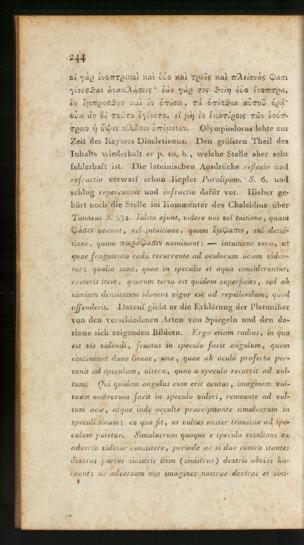 244
οἱ γὰρ ἐνοπτρικοὶ καὶ δύο καὶ τρεῖς καὶ πλείονάς φασι
γίνεσθαι ἀνακλάσεις· ἐὰν γάρ τις θείη δύο ἔνοπτρα,
ἓν ἔμπροσθεν καὶ ἓν ὀπίσω, τὰ ὀπίσθια αὑτοῦ ὁρᾷ·
οὐκ ἂν δὲ τοῦτο ἐγίνετο, εἰ μὴ ἐν ἑκατέροις τῶν ἐσόπ-
τρων ἡ ὄψις κλάσιν ὑπέμενεν. Olympiodorus lebte zur
Zeit des Kaysers Diocletianus. Den gröſsten Theil des
Inhalts wiederholt er p. 10, b., welche Stelle aber sehr
fehlerhaft ist. Die lateinischen Ausdrücke reflexio und
refractio verwarf schon Kepler Paralipom. S. 6. und
schlug repercussus und infractio dafür vor. Hieher ge-
hört noch die Stelle im Kommentar des Chalcidius über
Timaeus S. 332. Iuxta ajunt, videre nos vel tuitione, quam
φάσιν vocant, vel intuitione, quam ἔμφασιν, vel detui-
tione, quam παράφασιν nominant; — intuitione vero, ut
quae fragmento radii recurrente ad oculorum aciem viden-
tur: qualia sunt, quae in speculis et aqua considerantur,
ceteris item, quorum tersa est quidem superficies, sed ob
nimiam densitatem idoneus vigor est ad repellendum, quod
offenderit. Darauf giebt er die Erklärung der Platoniker
von den verschiedenen Arten von Spiegeln und den da-
rinne sich zeigenden Bildern. Ergo etiam radius, in quo
est vis videndi, fractus in speculo facit angulum, quem
contineant duae lineae, una, quae ab oculo profecta per-
venit ad speculum, altera, quae a speculo recurrit ad vul-
tum. Qui quidem angulus cum erit acutus, imaginem vul-
tuum nostrorum facit in speculo videri, remeante ad vul-
tum acie, atque inde occulte praecipitante simulacrum in
speculi sinum; ex quo fit, ut vultus noster transisse ad spe-
culum putetur. Simulacrum quoque e speculo resultans ex
adverso videtur consistere, perinde ac si duo contra stantes
dextras partes sinistris item (sinistras) dextris obvias ha-
beant; sic adversum nos imagines nostrae dextras et sini-